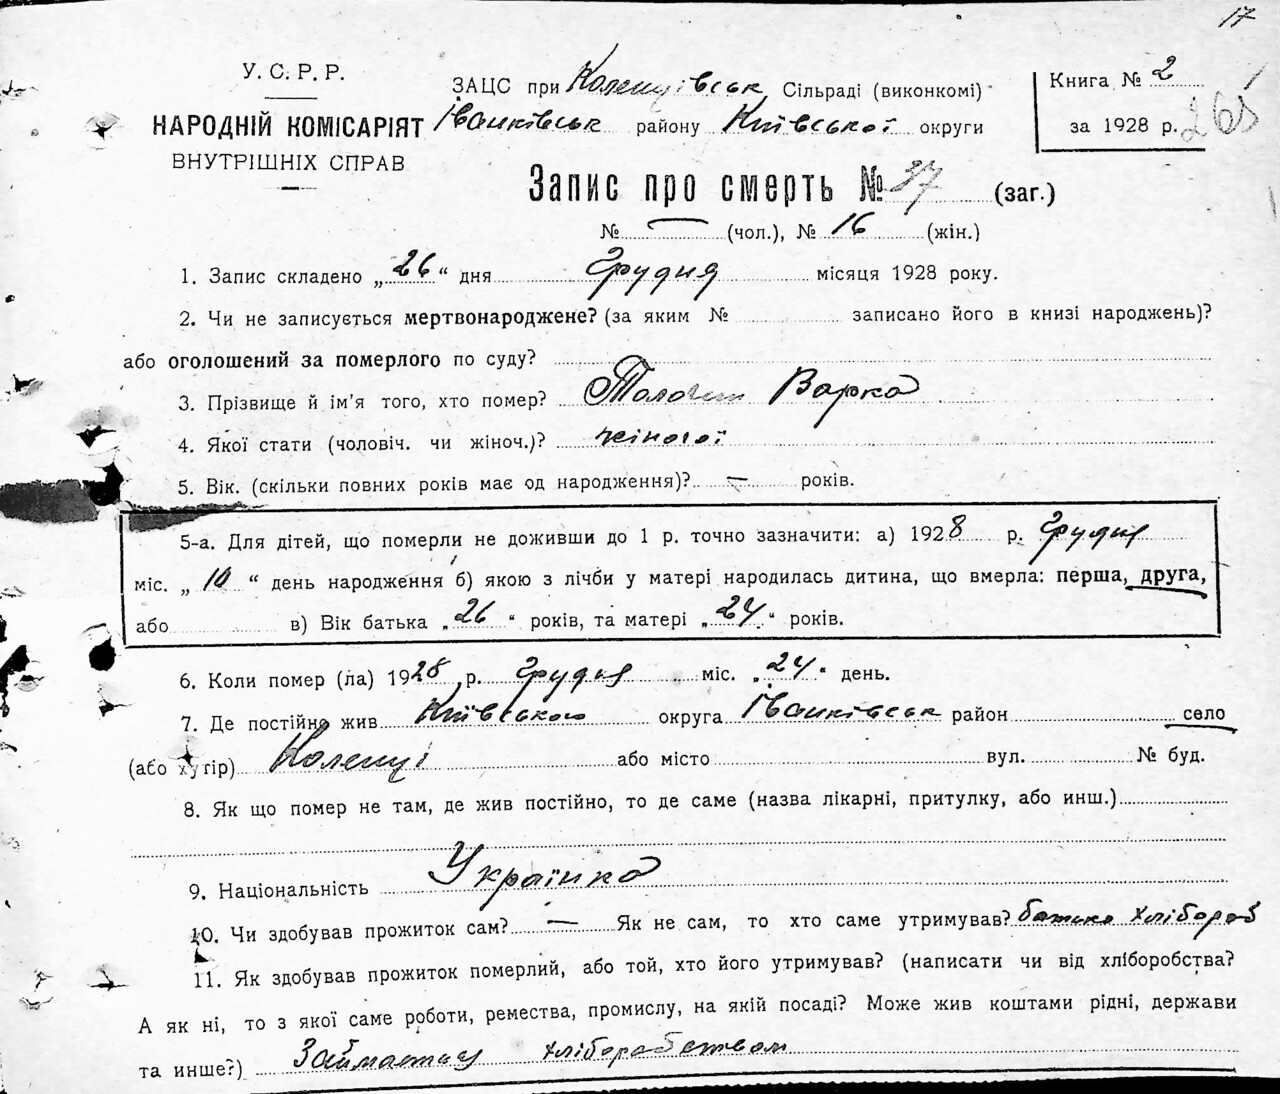 17
У. С. Р. Р.
НАРОДНІЙ КОМІСАРІЯТ
ВНУТРІШНІХ СПРАВ
ЗАЦС при Коленцівськ Сільраді (виконкомі)
Іванківськ району Київської округи
Книга № 2
за 1928 р.
Запис про смерть № 37 (заг.)
№ — (чол.), № 16 (жін.)
1. Запис складено „26“ дня Грудня місяця 1928 року.
2. Чи не записується мертвонароджене? (за яким № записано його в книзі народжень)?
або оголошений за померлого по суду?
3. Прізвище й ім'я того, хто помер? Толочин Варка
4. Якої стати (чоловіч. чи жіноч.)? жіночої
5. Вік. (скільки повних років має од народження)? — років.
5-а. Для дітей, що померли не доживши до 1 р. точно зазначити: а) 1928 р. Грудня
міс. „10“ день народження б) якою з лічби у матері народилась дитина, що вмерла: перша, друга,
або в) Вік батька „26“ років, та матері „24“ років.
6. Коли помер (ла) 1928 р. Грудня міс. „24“ день.
7. Де постійно жив Київського округа Іванківськ район село
(або хутір) Коленці або місто вул. № буд.
8. Як що помер не там, де жив постійно, то де саме (назва лікарні, притулку, або инш.)
9. Національність Українка
10. Чи здобував прожиток сам? — Як не сам, то хто саме утримував? батько хлібороб
11. Як здобував прожиток померлий, або той, хто його утримував? (написати чи від хліборобства?
А як ні, то з якої саме роботи, ремества, промислу, на якій посаді? Може жив коштами рідні, держави
та инше?) Займаєтьця хліборобством